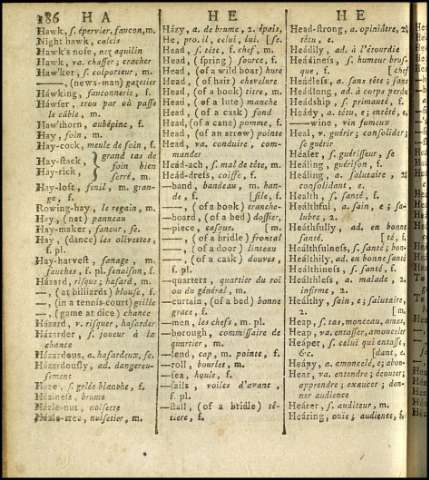 186 H A
H E
H E
Hawk, s. épervier, faucon, m.
Night hawk, calcis
Hawk's nose, nez aquilin
Hawk, va. chasser; cracher
Haw'ker, s. colporteur, m.
—, (news-man) gazetier
Háwking, fauconnerie, f.
Háwser, trou par où passe
le cáble, m.
Haw'thorn, aubépine, f.
Hay, foin, m.
Hay-cock, meule de foin, f.
Hay-stack, grand tas de
foin bien
Hay-rick, serré, m.
Hay-loft, fenil, m. gran-
ge, f.
Rowing-hay, le regain, m.
Hey, (net) panneau
Hay-maker, faneur, se.
Hay, (dance) les olivettes,
f. pl.
Hay-harvest, fanage, m.
fauches, f. pl. fenaison, f.
Házard, risque; hasard, m.
—, (at billiards) blouse, f.
—, (in a tennis-court) grille
—, (game at dice) chance
Hazard, v. risquer, hasarder
Házarder, s. joueur à la
chance
Házardous, a. hasardeux, se.
Házardously, ad. dangereu-
sement
Haze, s. gelée blanche, f.
Háziness, brume
Házle-nut, noisette
Házle-tree, noisetier, m.
Házy, a. de brume, 2. épais,
He, pro. il, celui, lui. [se.
Head, s. tête, f. chef, m.
Head, (spring) source, f.
Head, (of a wild boar) hure
Head, (of hair) chevelure
Head, (of a book) titre, m.
Head, (of a lute) manche
Head, (of a cask) fond
Head, (of a cane) pomme, f.
Head, (of an arrow) pointe
Head, va. conduire, com-
mander
Heád-ach, s. mal de tête, m.
Heád-dress, coiffe, f.
—band, bandeau, m. ban-
de, f. [file, f.
—, (of a book) tranche-
—board, (of a bed) dossier,
—piece, casque. [m.
—, (of a bridle) frontal
—, (of a door) linteau
—, (of a cask) douves,
f. pl.
—quarters, quartier du roi
ou du général, m.
—curtain, (of a bed) bonne
grace, f.
—men, les chefs, m. pl.
—borough, commissaire de
quartier, m.
—land, cap, m. pointe, f.
—roll, bourlet, m.
—sea, houle, f.
—sails, voiles d'avant,
f. pl.
—stall, (of a bridle) té-
tiere, f.
Head-strong, a. opiniâtre, 2.
têtu, e.
Heádily, ad. à l'étourdie
Heádiness, s. humeur brus-
que, f. [chef
Headless, a. sans tête; sans
Headlong, ad. à corps perdu
Headship, s. primauté, f.
Heády, a. têtu, e; entêté, e.
—wine, vin fumeux
Heal, v. guérir; consolider;
se guérir
Healer, s. guérisseur, se
Healing, guérison, f.
Healing, a. salutaire, 2.
consolidant, e.
Health, s. santé, f.
Healthful, a. sain, e; sa-
lubre, 2.
Heálthfully, ad. en bonne
santé [té, f.
Healthfulness, s. santé; bon-
Healthily, ad. en bonne santé
Healthiness, s. santé, f.
Healthless, a. maladif, 2.
infirme, 2.
Healthy, sain, e; salutaire,
2. [m.
Heap, s. tas, monceau, amas,
Heap, va. entasser, amonceler
Heaper, s. celui qui entasse,
&c. [dant, e.
Heápy, a. amoncelé, e; abon-
Hear, va. entendre; écouter;
apprendre; exaucer; don-
ner audience
Heárer, s. auditeur, m.
Hearing, ouie; audience, f.